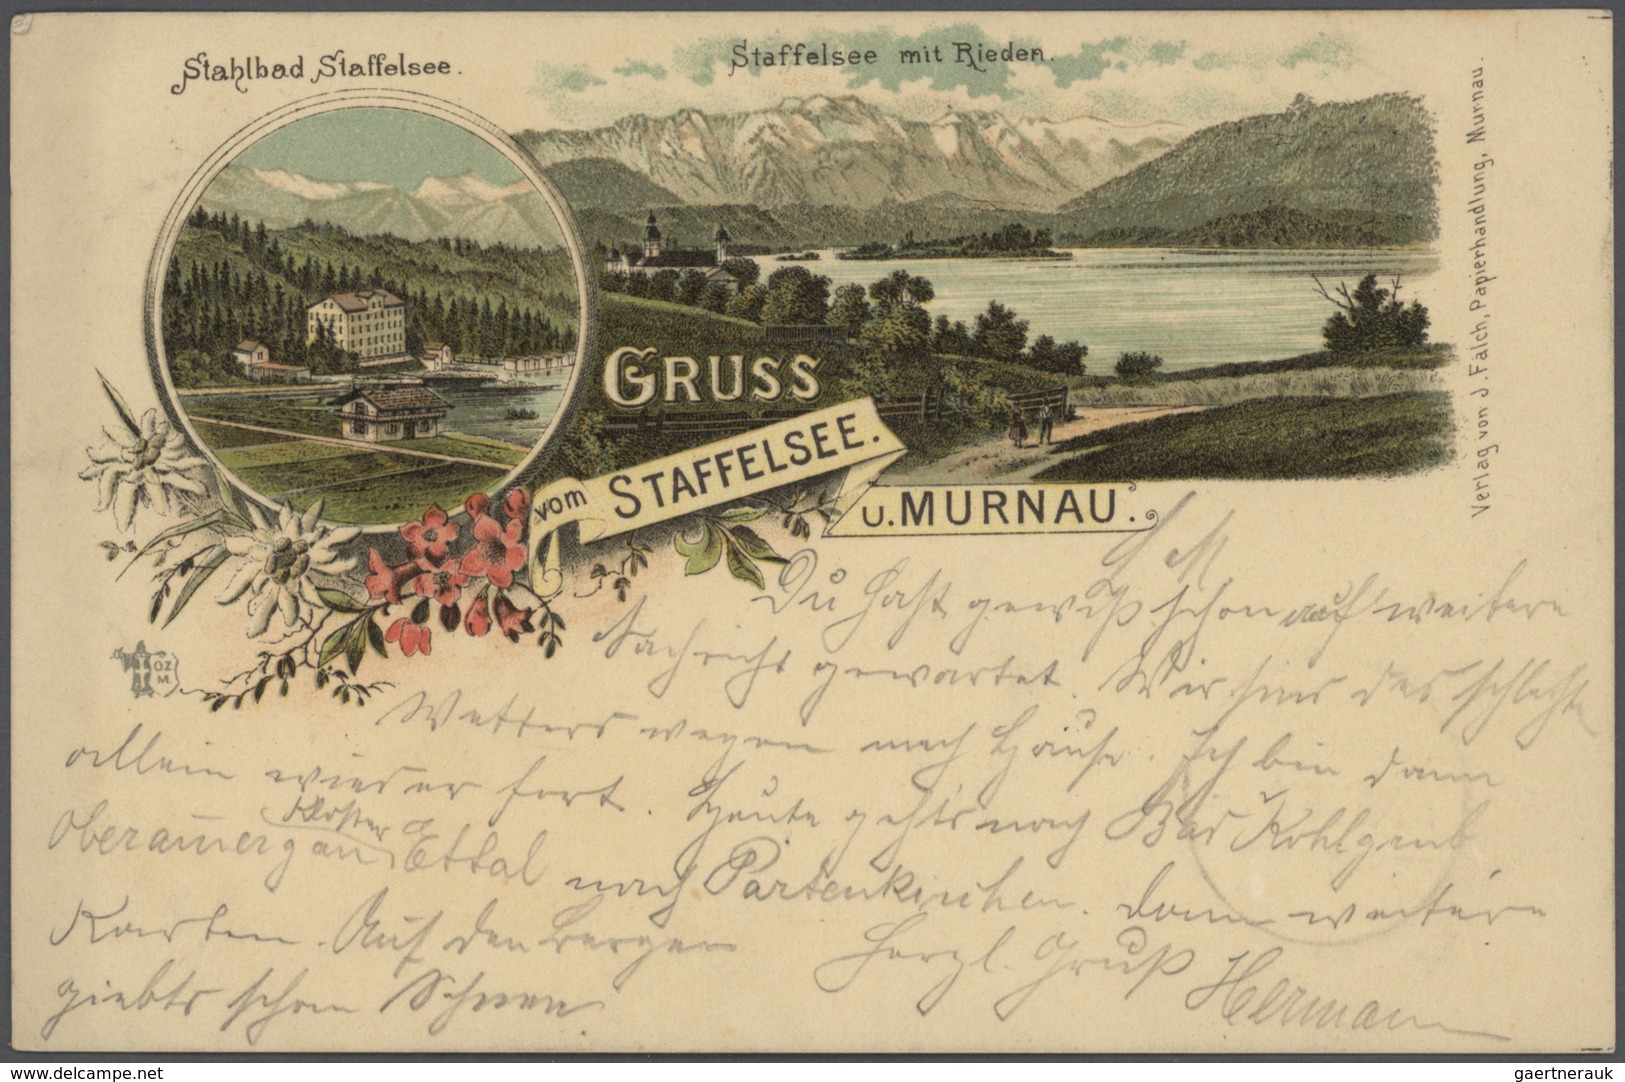 Stahlbad Staffelsee.
Staffelsee mit Rieden.
Verlag von J. Falch, Papierhandlung, Murnau.
GRUSS
vom STAFFELSEE.
U. MURNAU.
OZ
M.
Du hast gewiß schon auf weitere
Nachricht gewartet. Wir sind des schlechten
Wetters wegen nach Hause. Ich bin dann
allein wieder fort. Heute gehts nach Bad Kohlgrub
Oberam̄ergau Kloster Ettal nach Partenkirchen. Dann weitere
Karten. Auf den Bergen Herzl. Gruß
giebts schon Schnee. Hermann
delcampe.net
gaertnerauk